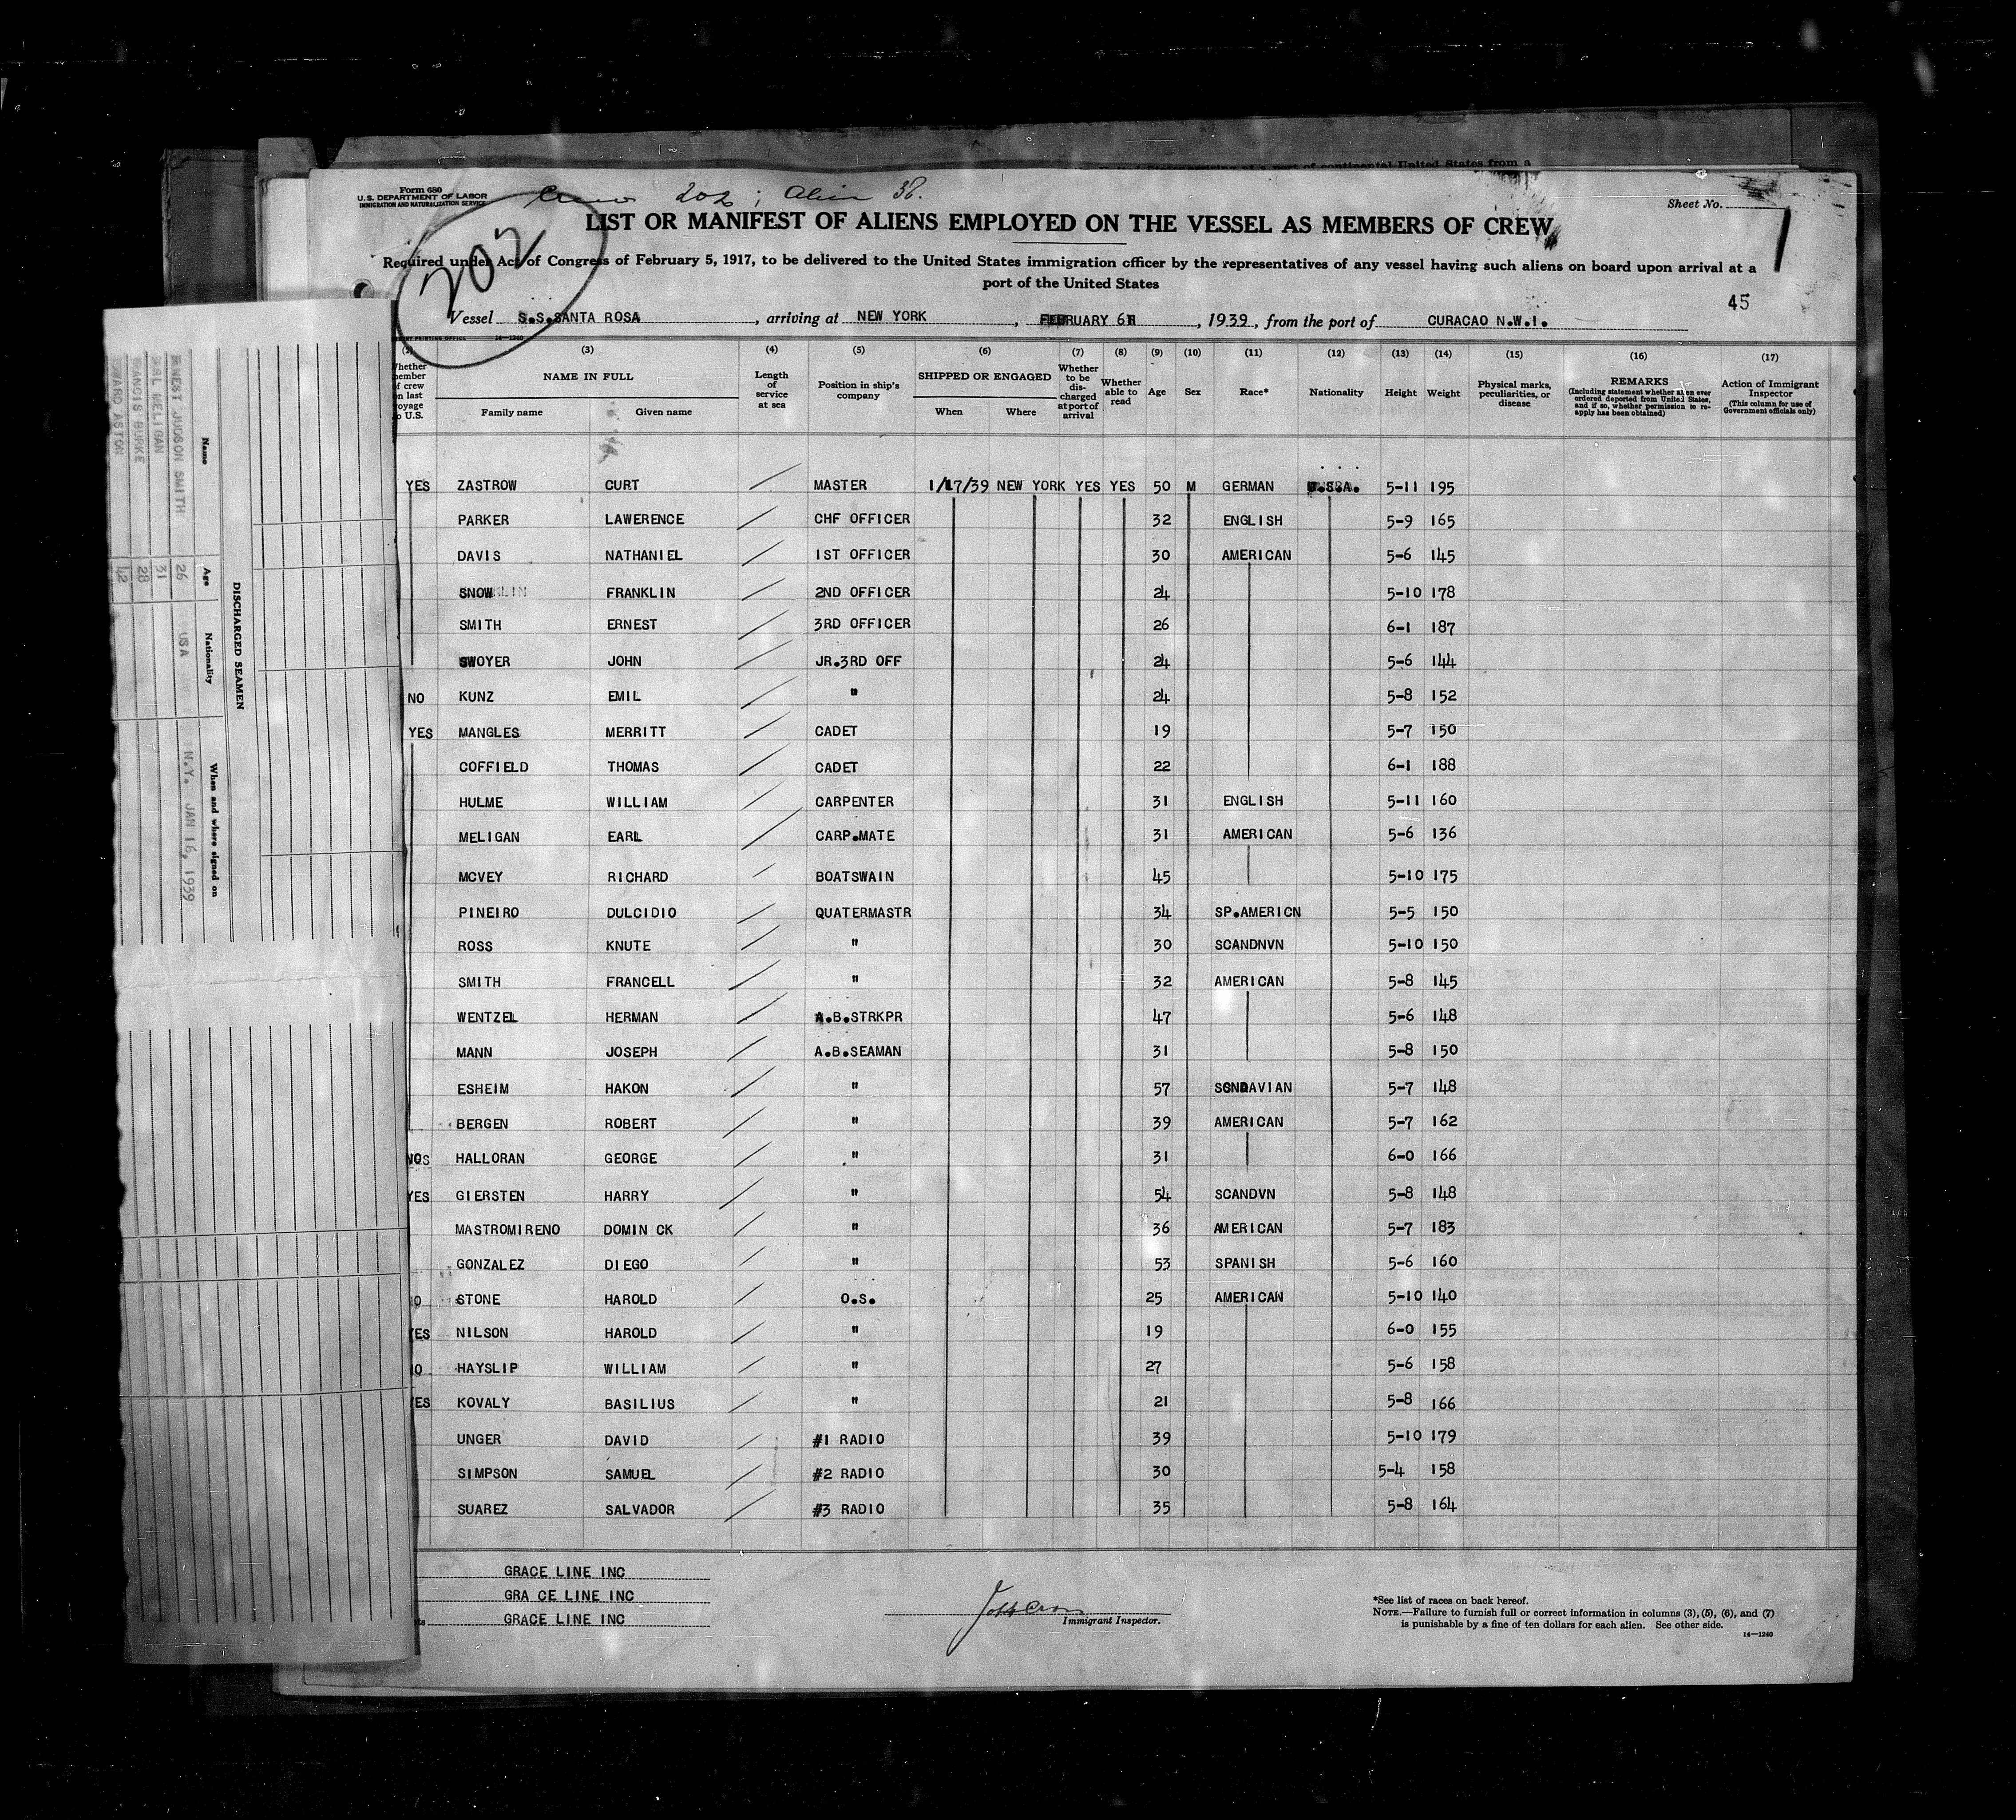 United States arising at a port of continental United States from a
Form 680
U.S. DEPARTMENT OF LABOR
IMMIGRATION AND NATURALIZATION SERVICE
Crew 202; Alien 38.
Sheet No. 1
202
LIST OR MANIFEST OF ALIENS EMPLOYED ON THE VESSEL AS MEMBERS OF CREW
Required under Act of Congress of February 5, 1917, to be delivered to the United States immigration officer by the representatives of any vessel having such aliens on board upon arrival at a
port of the United States
45
Vessel S.S.SANTA ROSA, arriving at NEW YORK, FEBRUARY 6, 1939, from the port of CURACAO N.W.I.
PRINTING OFFICE 14—1240
(2) Whether member of crew on last voyage to U.S. (3) NAME IN FULL Family name Given name (4) Length of service at sea (5) Position in ship's company (6) SHIPPED OR ENGAGED When Where (7) Whether to be discharged at port of arrival (8) Whether able to read (9) Age (10) Sex (11) Race* (12) Nationality (13) Height (14) Weight (15) Physical marks, peculiarities, or disease (16) REMARKS (Including statement whether alien ever ordered deported from United States, and if so, whether permission to reapply has been obtained) (17) Action of Immigrant Inspector (This column for use of Government officials only)
YES ZASTROW CURT MASTER 1/17/39 NEW YORK YES YES 50 M GERMAN U.S.A. 5-11 195
PARKER LAWERENCE CHF OFFICER 32 ENGLISH 5-9 165
DAVIS NATHANIEL 1ST OFFICER 30 AMERICAN 5-6 145
SNOW FRANKLIN 2ND OFFICER 24 5-10 178
SMITH ERNEST 3RD OFFICER 26 6-1 187
SWOYER JOHN JR.3RD OFF 24 5-6 144
NO KUNZ EMIL " 24 5-8 152
YES MANGLES MERRITT CADET 19 5-7 150
COFFIELD THOMAS CADET 22 6-1 188
HULME WILLIAM CARPENTER 31 ENGLISH 5-11 160
MELIGAN EARL CARP.MATE 31 AMERICAN 5-6 136
MCVEY RICHARD BOATSWAIN 45 5-10 175
PINEIRO DULCIDIO QUATERMASTR 34 SP.AMERICN 5-5 150
ROSS KNUTE " 30 SCANDNVN 5-10 150
SMITH FRANCELL " 32 AMERICAN 5-8 145
WENTZEL HERMAN A.B.STRKPR 47 5-6 148
MANN JOSEPH A.B.SEAMAN 31 5-8 150
ESHEIM HAKON " 57 SCNDAVIAN 5-7 148
BERGEN ROBERT " 39 AMERICAN 5-7 162
HALLORAN GEORGE " 31 6-0 166
YES GIERSTEN HARRY " 54 SCANDVN 5-8 148
MASTROMIRENO DOMIN CK " 36 AMERICAN 5-7 183
GONZALEZ DIEGO " 53 SPANISH 5-6 160
STONE HAROLD O.S. 25 AMERICAN 5-10 140
YES NILSON HAROLD " 19 6-0 155
HAYSLIP WILLIAM " 27 5-6 158
YES KOVALY BASILIUS " 21 5-8 166
UNGER DAVID #1 RADIO 39 5-10 179
SIMPSON SAMUEL #2 RADIO 30 5-4 158
SUAREZ SALVADOR #3 RADIO 35 5-8 164
GRACE LINE INC
GRA CE LINE INC
GRACE LINE INC
Immigrant Inspector.
*See list of races on back hereof.
NOTE.—Failure to furnish full or correct information in columns (3), (5), (6), and (7)
is punishable by a fine of ten dollars for each alien. See other side.
14—1240
DISCHARGED SEAMEN
Name Age Nationality When and where signed on
ERNEST JUDSON SMITH 26 USA N.Y. JAN 16, 1939
EARL MELIGAN 31
FRANCIS BURKE 28
EDWARD ASTON 42